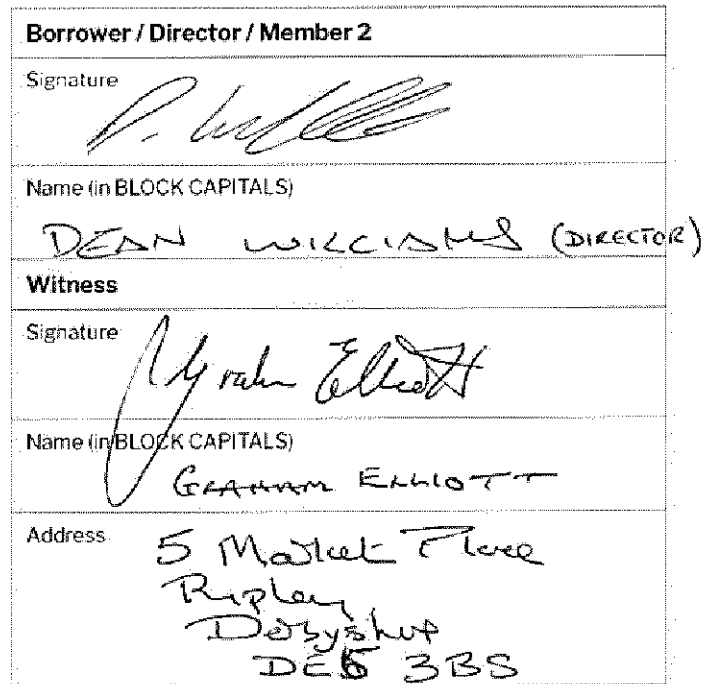 Borrower / Director / Member 2
Signature
Name (in BLOCK CAPITALS)
DEAN WILLIAMS (DIRECTOR)
Witness
Signature
Graham Elliott
Name (in BLOCK CAPITALS)
GRAHAM ELLIOTT
Address
5 Market Place
Ripley
Derbyshire
DE5 3BS